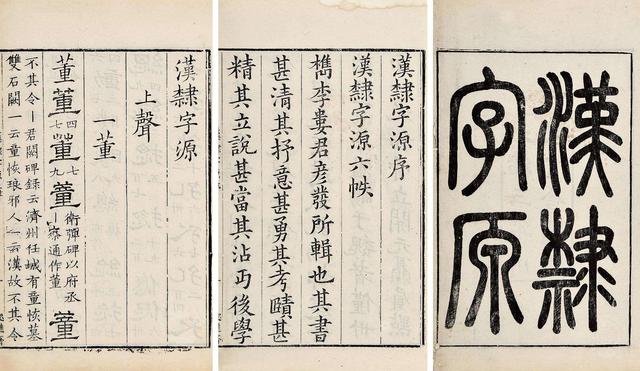 漢隸
字原
漢隸字源序
漢隸字源六帙
檇李婁君彦發所輯也其書
甚清其抒意甚勇其考賾甚
精其立說甚當其沾丐後學
漢隸字源
上聲
一董
董董四七董七九董衛彈碑以府丞一察通作董董
不其令一君闕碑錄云濟州任城有童恢墓
雙石闕一云童恢琅邪人一云漢故不其令